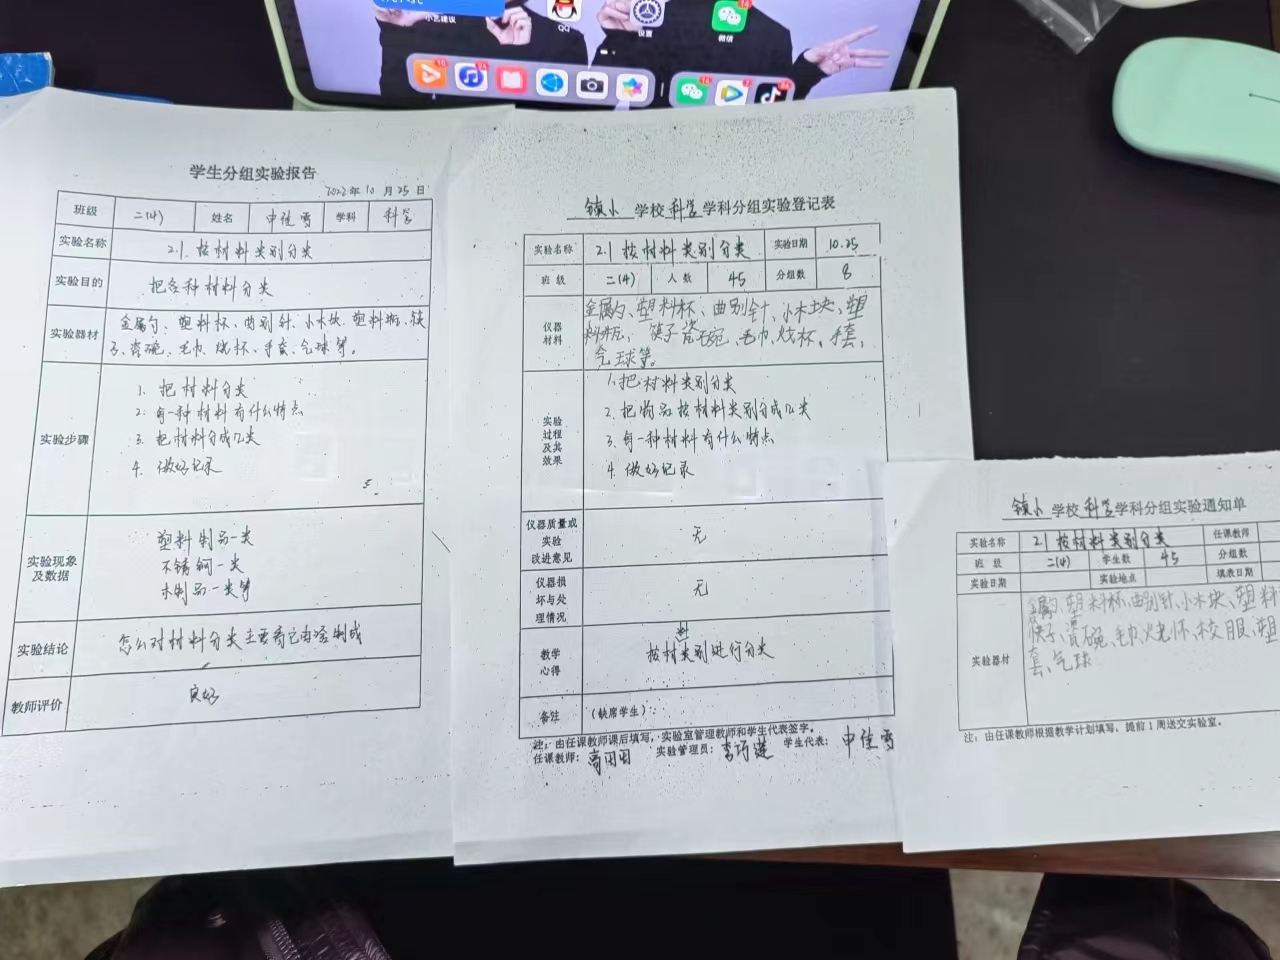 小艺建议
QQ
设置
微信
学生分组实验报告
2022年10月25日
班级 二(4) 姓名 申佳雪 学科 科学
实验名称 2.1 按材料类别分类
实验目的 把各种材料分类
实验器材 金属勺、塑料杯、曲别针、小木块、塑料瓶、筷
子、瓷碗、毛巾、烧杯、手套、气球等。
实验步骤
1. 把材料分类
2. 每一种材料有什么特点
3. 把材料分成几类
4. 做好记录
实验现象及数据
塑料制品一类
不锈钢一类
木制品一类等
实验结论 怎么对材料分类主要看它由谁制成
教师评价 良好
镇小 学校 科学 学科分组实验登记表
实验名称 2.1 按材料类别分类 实验日期 10.25
班级 二(4) 人数 45 分组数 8
仪器材料 金属勺、塑料杯、曲别针、小木块、塑
料瓶、筷子瓷碗、毛巾、烧杯、手套、
气球等。
实验过程及其效果
1. 把材料类别分类
2. 把物品按材料类别分成几类
3. 每一种材料有什么特点
4. 做好记录
仪器质量或实验改进意见 无
仪器损坏与处理情况 无
教学心得 按材料类别进行分类
备注 (缺席学生):
注: 由任课教师课后填写,实验室管理教师和学生代表签字。
任课教师: 高田田 实验管理员: 李巧莲 学生代表: 申佳雪
镇小 学校 科学 学科分组实验通知单
实验名称 2.1 按材料类别分类 任课教师
班级 二(4) 学生数 45 分组数
实验日期 实验地点 填表日期
实验器材 金属勺、塑料杯、曲别针、小木块、塑料
筷子、瓷碗、毛巾、烧杯、校服、塑
套、气球
注: 由任课教师根据教学计划填写,提前1周送交实验室。